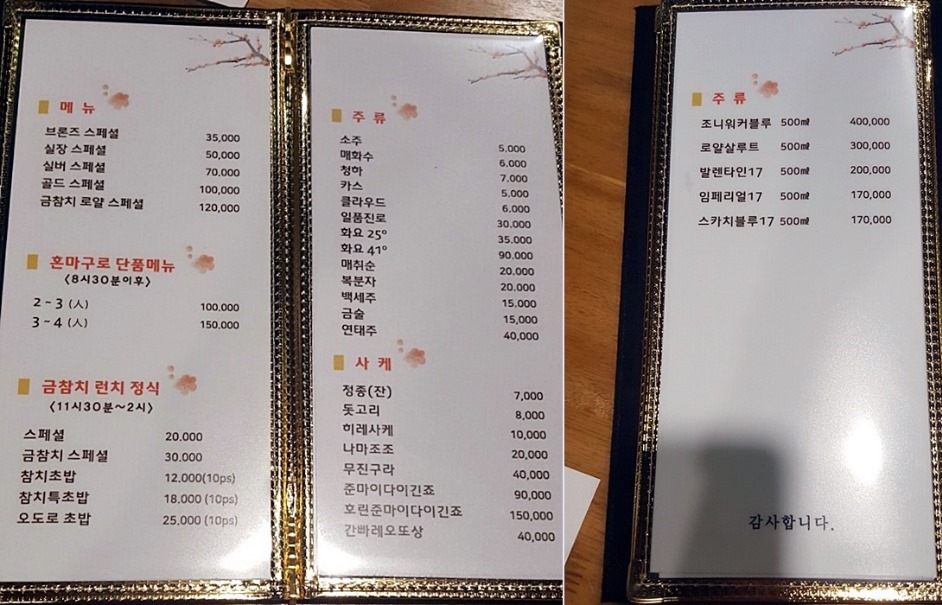 메 뉴
브론즈 스페셜 35,000
실장 스페셜 50,000
실버 스페셜 70,000
골드 스페셜 100,000
금참치 로얄 스페셜 120,000
혼마구로 단품메뉴
<8시30분이후>
2 ~ 3 (人) 100.000
3 ~ 4 (人) 150.000
금참치 런치 정식
<11시30분~2시>
스페셜 20.000
금참치 스페셜 30.000
참치초밥 12.000(10ps)
참치특초밥 18.000 (10ps)
오도로 초밥 25,000 (10ps)
주 류
소주 5.000
매화수 6.000
청하 7,000
카스 5.000
클라우드 6.000
일품진로 30.000
화요 25° 35.000
화요 41° 90.000
매취순 20.000
복분자 20.000
백세주 15.000
금술 15,000
연태주 40,000
사 케
정종(잔) 7,000
돗고리 8,000
히레사케 10,000
나마조조 20,000
무진구라 40,000
준마이다이긴죠 90,000
호린준마이다이긴죠 150,000
간빠레오또상 40,000
주 류
조니워커블루 500㎖ 400,000
로얄살루트 500㎖ 300,000
발렌타인17 500㎖ 200,000
임페리얼17 500㎖ 170,000
스카치블루17 500㎖ 170,000
감사합니다.